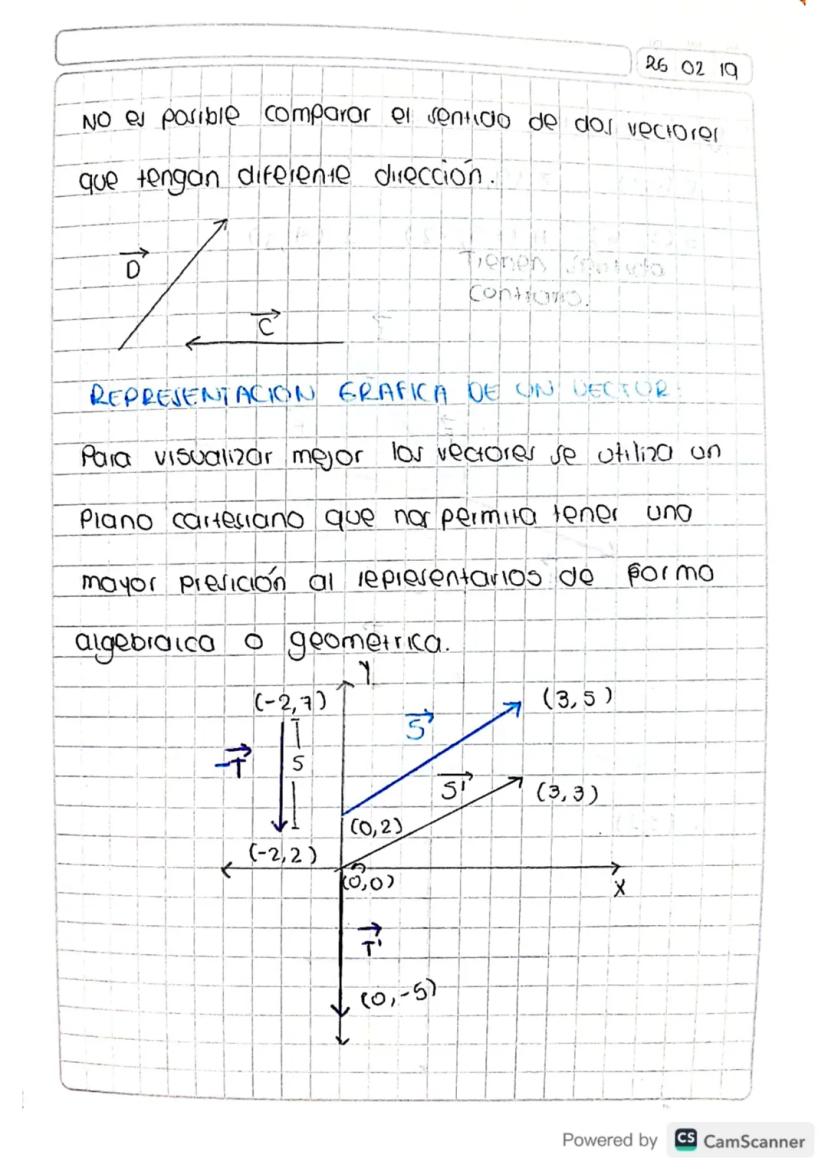 26 02 19
No es posible comparar el sentido de dos vectores
que tengan diferente dirección.
D
Tienen sentido
contrario.
C
REPRESENTACION GRAFICA DE UN VECTOR
Para visualizar mejor los vectores se utiliza un
plano cartesiano que nos permita tener una
mayor presición al representarlos de forma
algebraica o geometrica.
Y
(-2,7)
(3,5)
S
-T
5
S'
(3,3)
(0,2)
(-2,2)
(0,0)
X
T'
(0,-5)
Powered by CS CamScanner